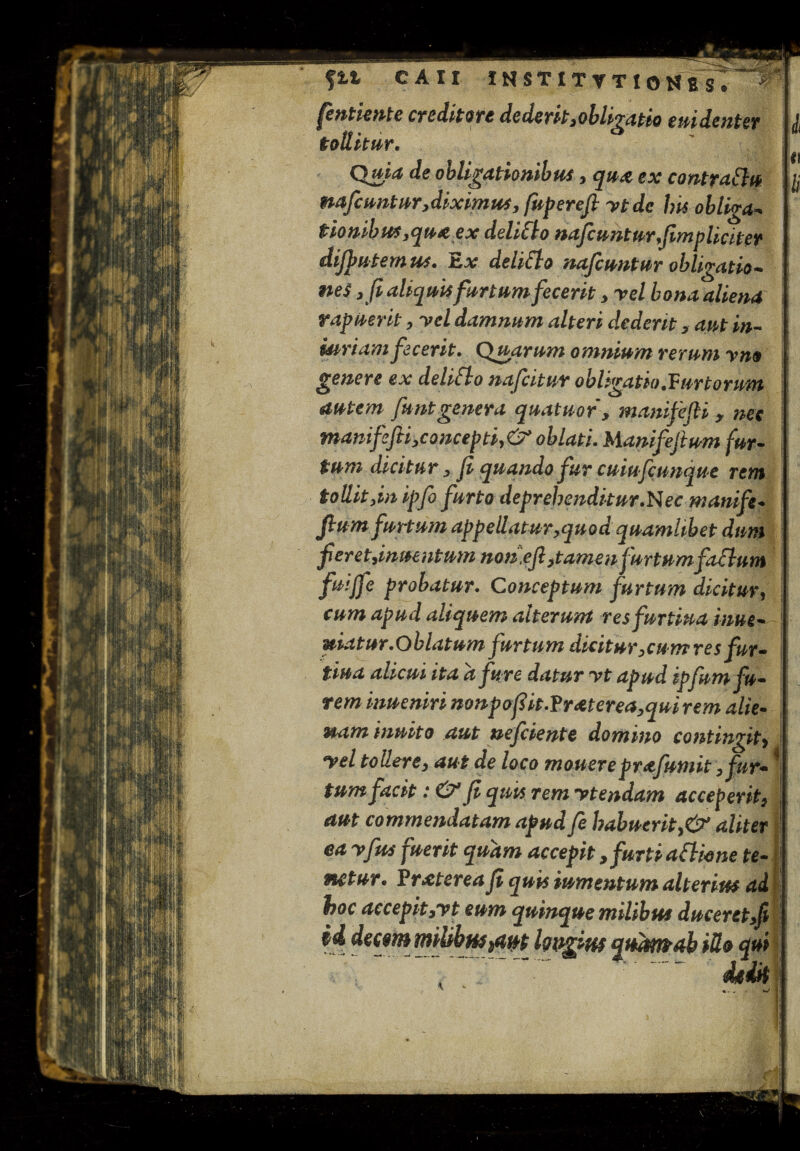 522 CAII INSTITVTIONES.
ſentiente creditore dederit,obligatio euidenter
tollitur.
Quia de obligationibus, quæ ex contractu
naſcuntur,diximus, ſupereſt vt de his obliga-
tionibus,quæ ex delicto naſcuntur,ſimpliciter
diſputemus. Ex delicto naſcuntur obligatio-
nes, ſi aliquis furtum fecerit, vel bona aliena
rapuerit, vel damnum alteri dederit, aut in-
iuriam fecerit. Quarum omnium rerum vno
genere ex delicto naſcitur obligatio.Furtorum
autem ſunt genera quatuor, manifeſti, nec
manifeſti,concepti,& oblati. Manifeſtum fur-
tum dicitur, ſi quando fur cuiuſcunque rem
tollit,in ipſo furto deprehenditur.Nec manife-
ſtum furtum appellatur,quod quamlibet dum
fieret,inuentum non eſt,tamen furtum factum
fuiſſe probatur. Conceptum furtum dicitur,
cum apud aliquem alterum res furtiua inue-
niatur.Oblatum furtum dicitur,cum res fur-
tiua alicui ita à fure datur vt apud ipſum fu-
rem inueniri non poßit.Præterea,qui rem alie-
nam inuito aut neſciente domino contingit,
vel tollere, aut de loco mouere præſumit, fur-
tum facit: & ſi quis rem vtendam acceperit,
aut commendatam apud ſe habuerit,& aliter
ea vſus fuerit quàm accepit, furti actione te-
netur. Præterea ſi quis iumentum alterius ad
hoc accepit,vt eum quinque milibus duceret,ſi
id decem milibus,aut longius quàm ab illo qui
dedit